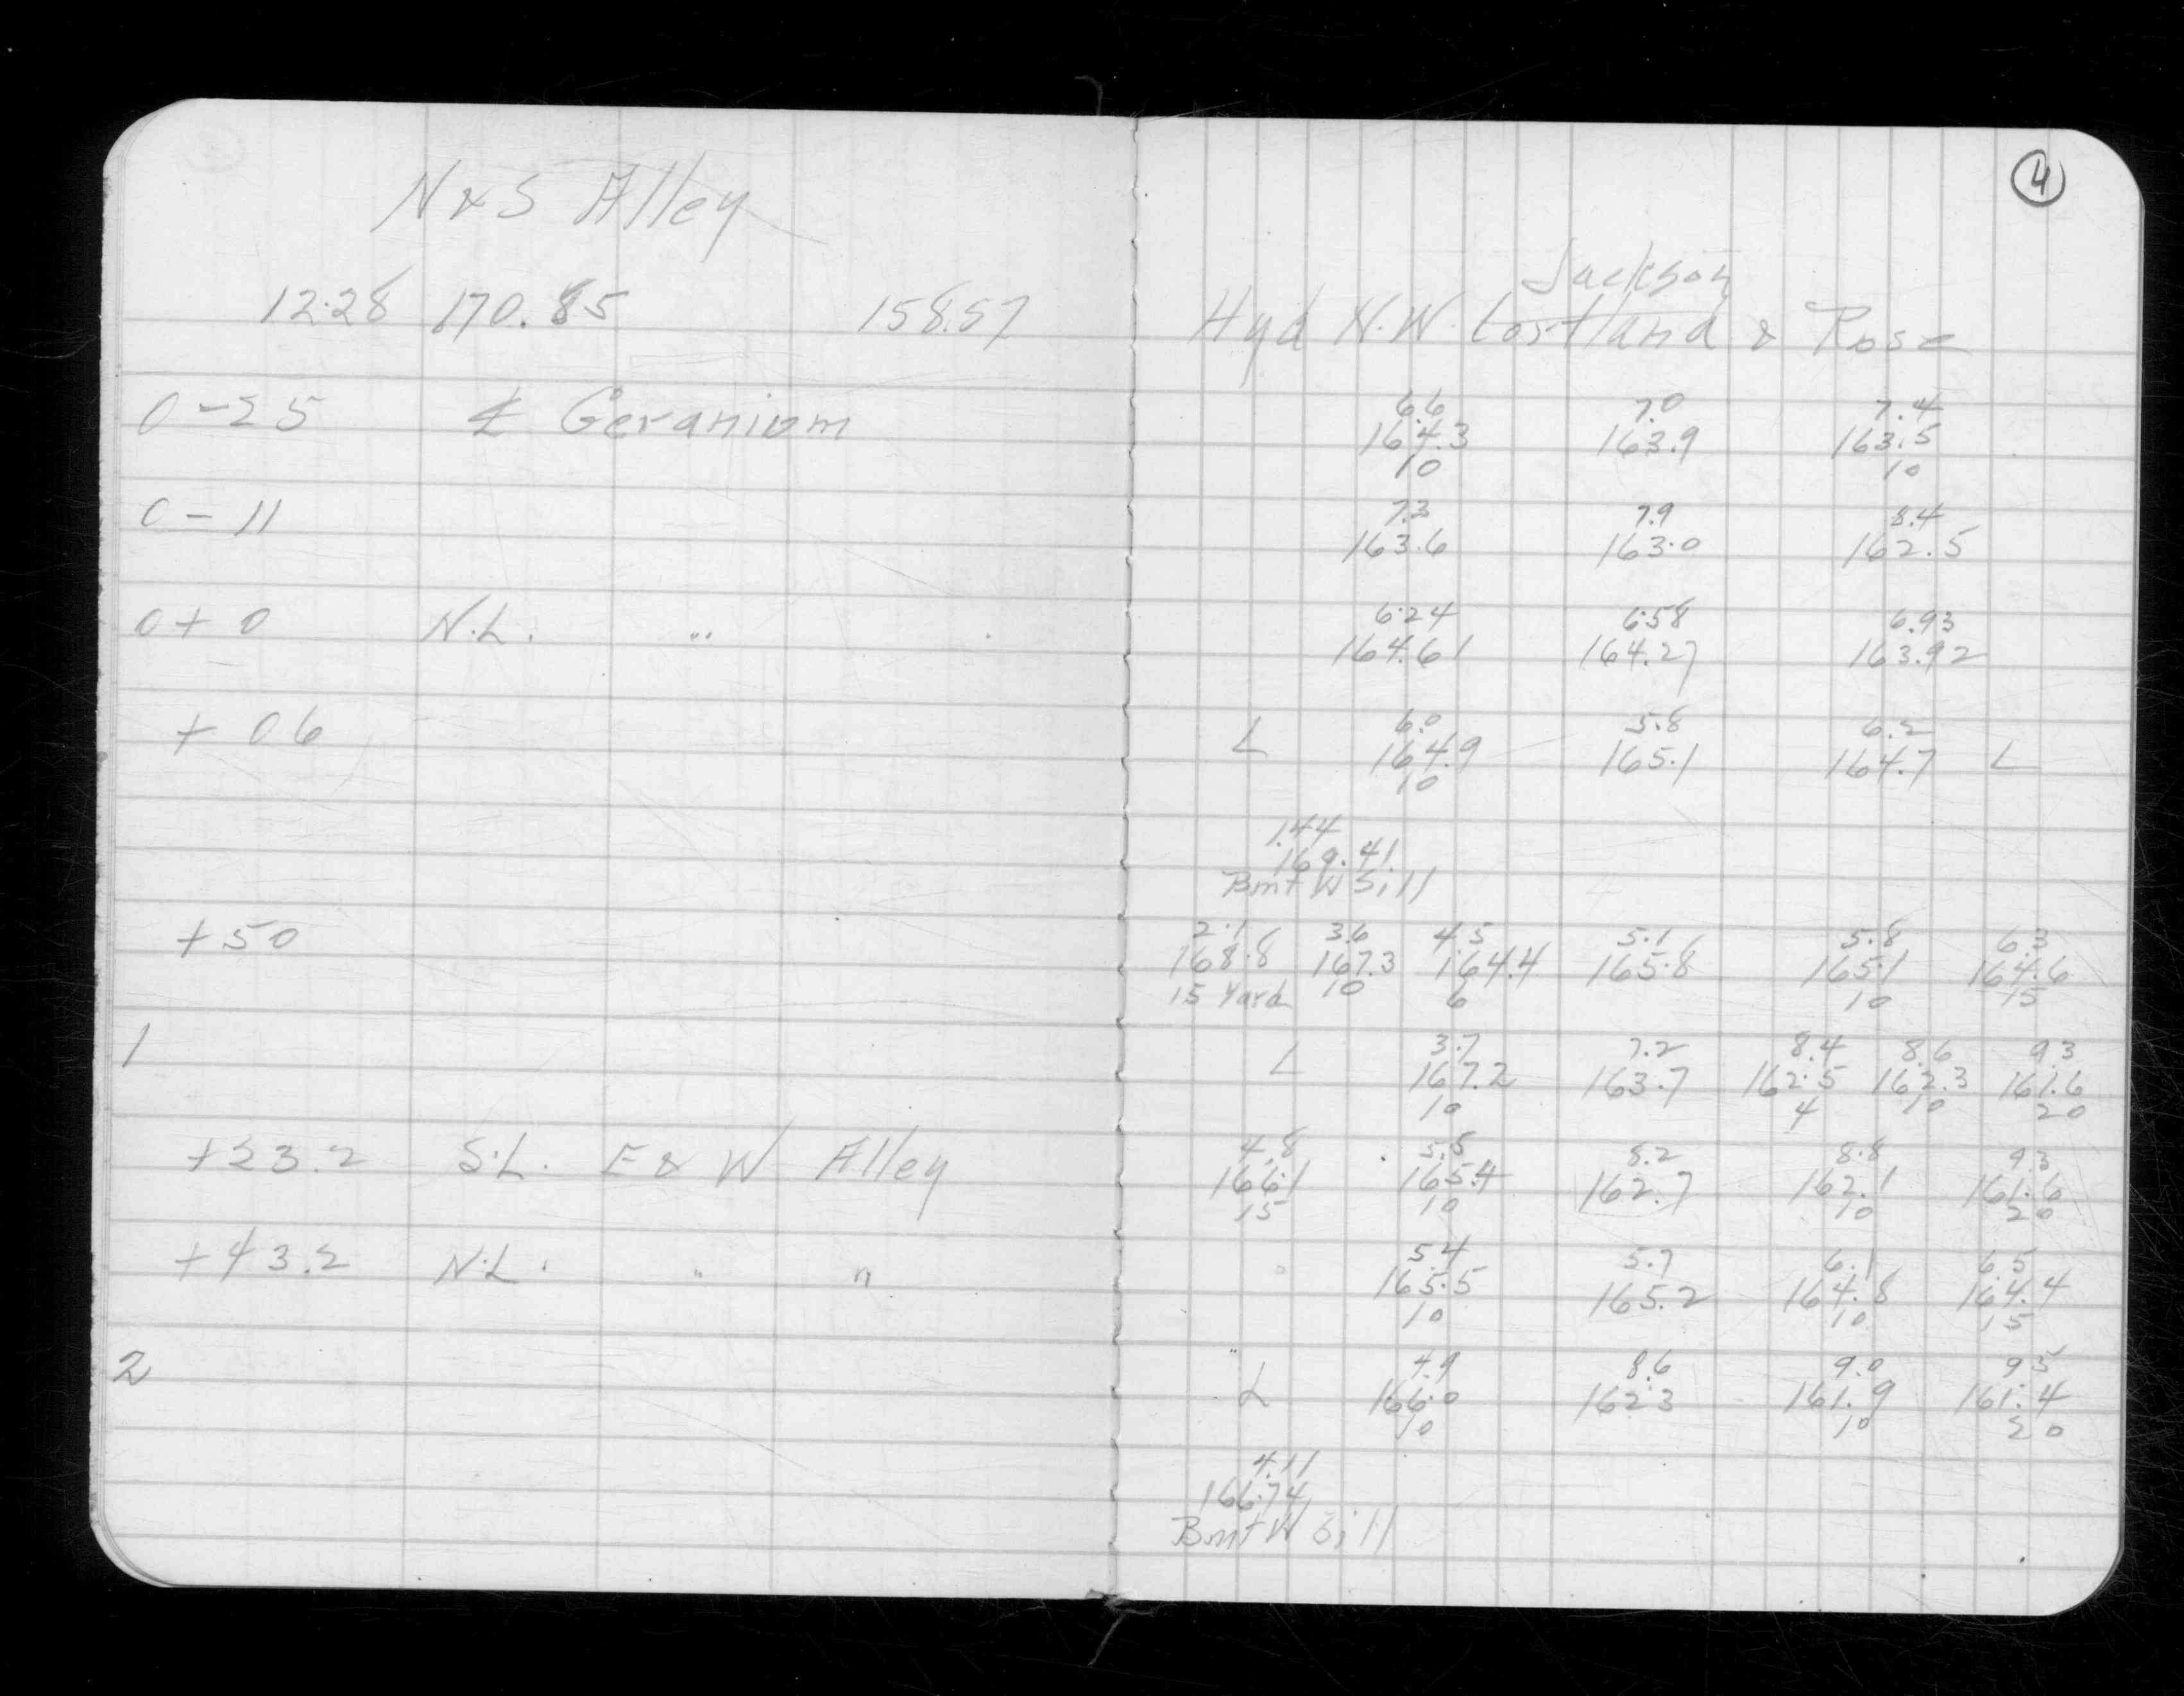 N & S Alley
12.28 170.85 158.57
0-25 ℄ Geranium
0-11
0+0 N.L. "
+06
+50
1
+23.2 S.L. E & W Alley
+43.2 N.L. " "
2
4
Jackson
Hyd N.W. Cortland & Rose
6.6 7.0 7.4
164.3 163.9 163.5
10 10
7.3 7.9 8.4
163.6 163.0 162.5
6.24 6.58 6.93
164.61 164.27 163.92
6.0 5.8 6.2
L 164.9 165.1 164.7 L
10
1.44
169.41
Bmt W Sill
2.1 3.6 4.5 5.1 5.8 6.3
168.8 167.3 164.4 165.8 165.1 164.6
15 Yard 10 6 10 15
3.7 7.2 8.4 8.6 9.3
L 167.2 163.7 162.5 162.3 161.6
10 4 10 20
4.8 5.5 8.2 8.8 9.3
166.1 165.4 162.7 162.1 161.6
15 10 10 20
5.4 5.7 6.1 6.5
165.5 165.2 164.8 164.4
10 10 15
4.9 8.6 9.0 9.5
L 166.0 162.3 161.9 161.4
10 10 20
4.11
166.74
Bmt W Sill